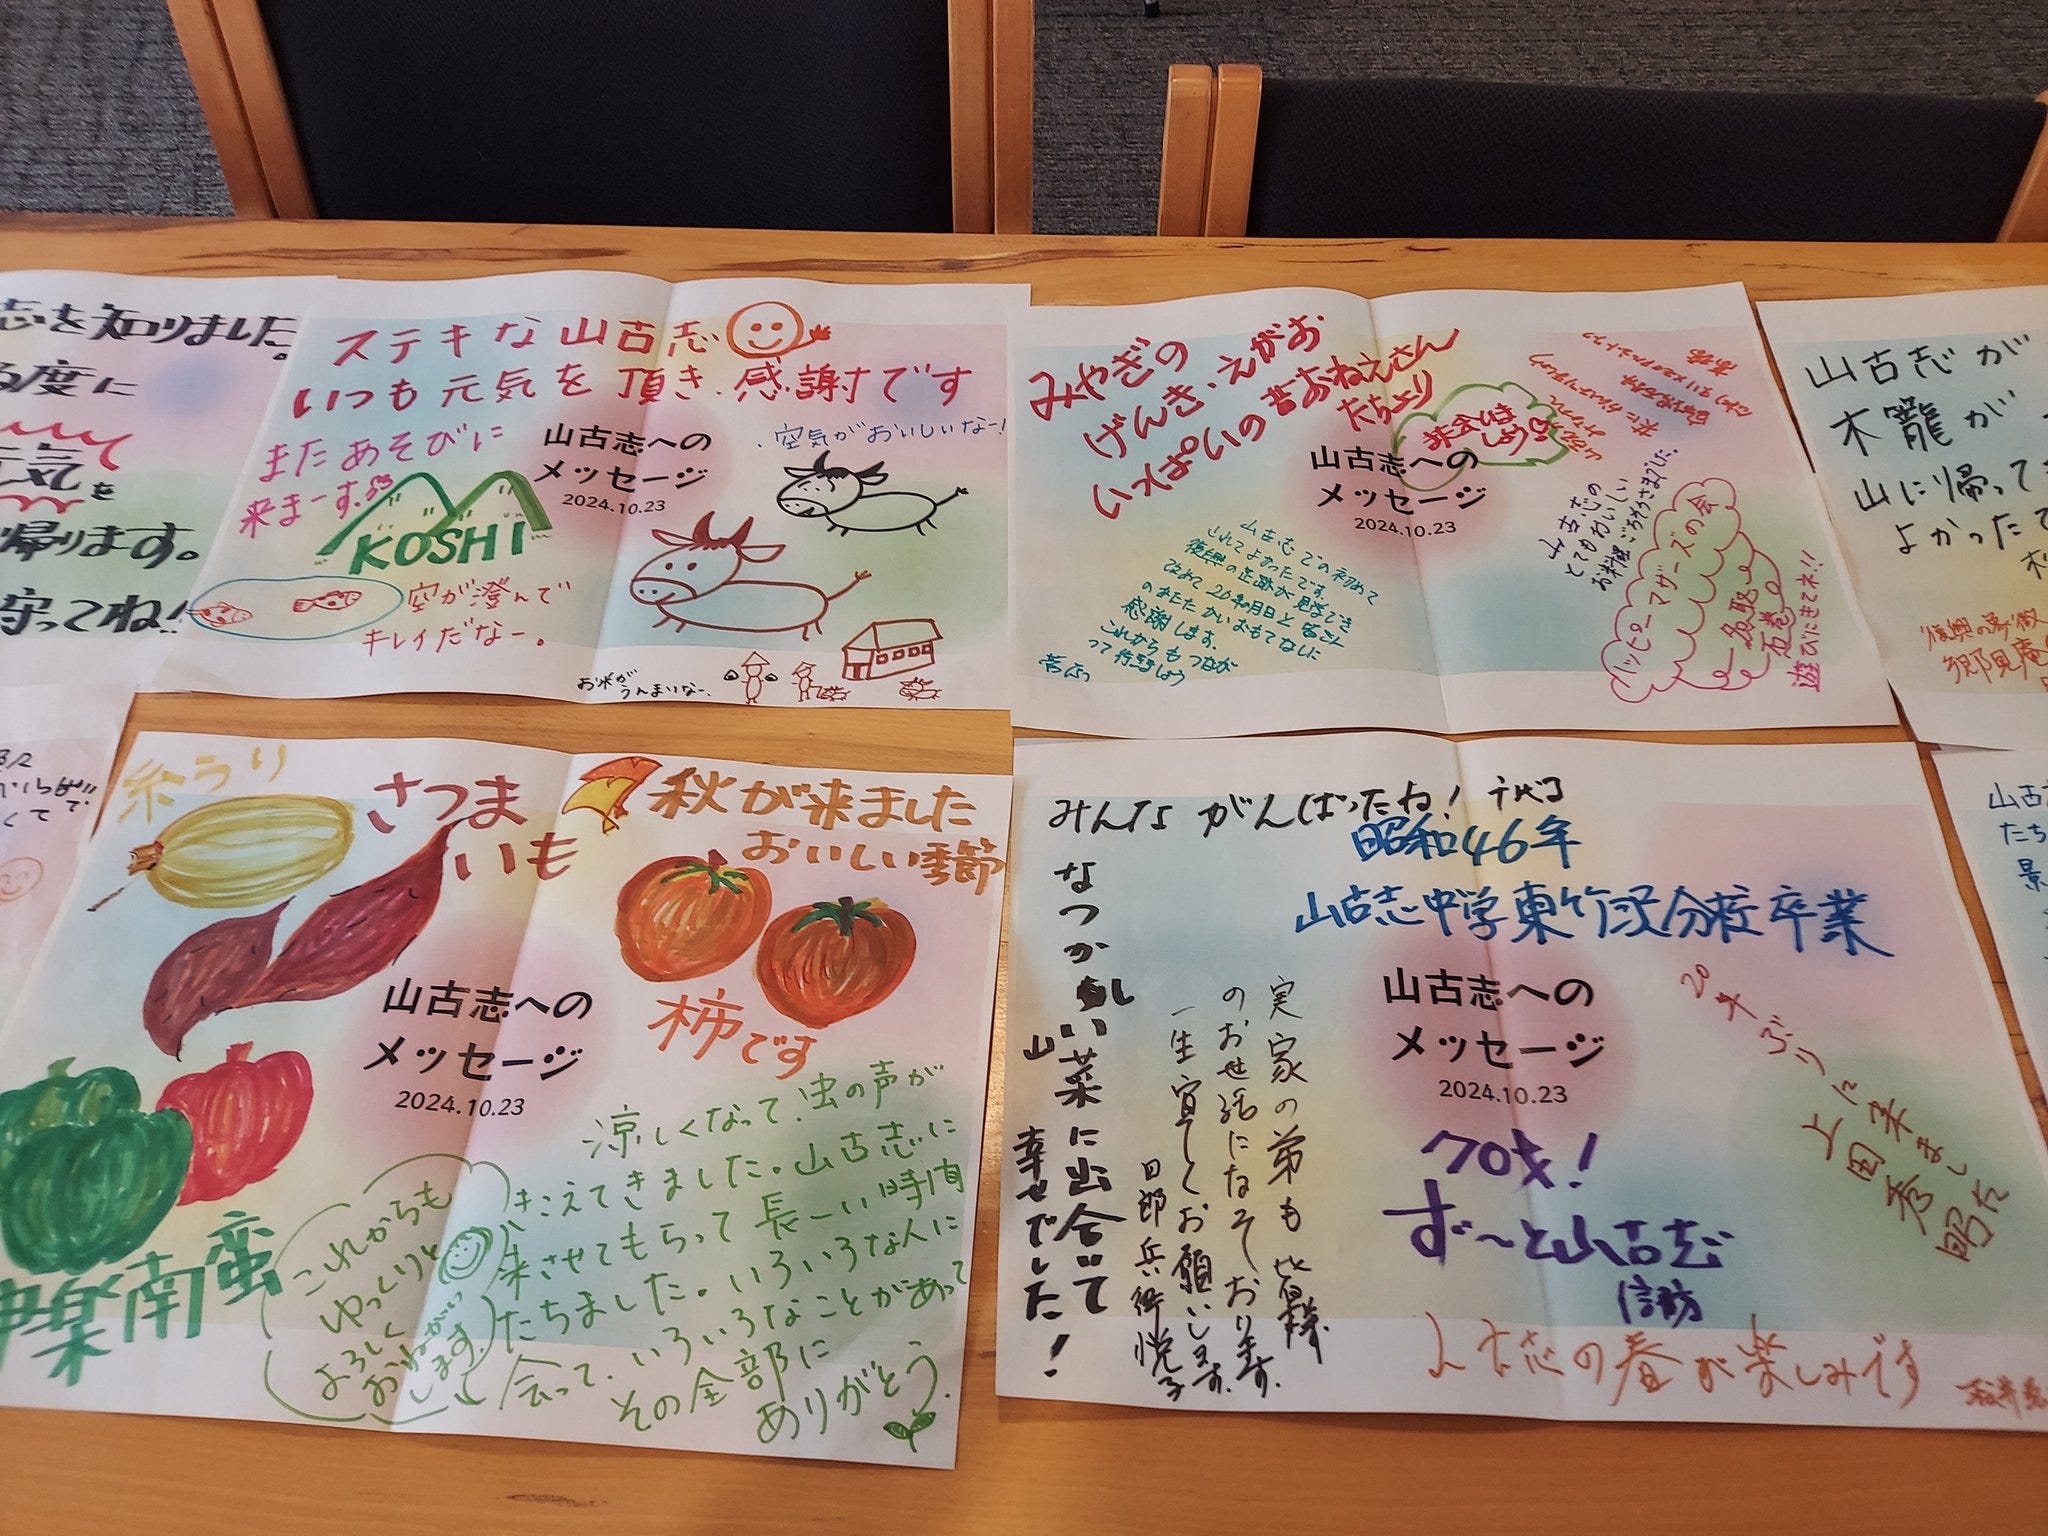 志を知りました。
る度に
元気を
帰ります。
守ってね!!
ステキな山古志
いつも元気を頂き、感謝です
またあそびに
来まーす
KOSHI
山古志への
メッセージ
2024.10.23
空気がおいしいなー!
空が澄んで
キレイだなー。
お米が
うんまいなー。
みやぎの
げんき・えがお
いっぱいの昔おねえさん
たちより
山古志への
メッセージ
2024.10.23
山古志での初めて
これてよかったです。
復興の足跡が見学でき
改めて20年の月日と皆さん
のあたたかいおもてなしに
感謝します。
これからもつなが
って行きましょう
山古志の
とてもおいしい
お料理ごちそうさまでした。
ハッピーマザーズの会
名取
石巻
遊びにきてネ!!
山古志が
木籠が
山に帰って
よかった
復興の象徴
郷見庵
糸うり
さつま
いも
秋が来ました
おいしい季節
柿です
山古志への
メッセージ
2024.10.23
神楽南蛮
これからも
ゆっくりと
よろしく
おねがい
します。
涼しくなって、虫の声が
きこえてきました。山古志に
来させてもらって長ーい時間
たちました。いろいろな人に
会って、いろいろなことがあって
その全部に
ありがとう。
みんな がんばったね! 千代子
昭和46年
山古志中学東竹沢分校卒業
なつかしい山菜に出会って
幸せでした!
実家の弟も皆様
のおせ話になっております。
一生宜しくお願いします。
四郎兵衛 悦子
山古志への
メッセージ
2024.10.23
20年ぶりに来ました
上田秀昭
70才!
ず〜と山古志
山古志の春が楽しみです
山古
たち
景